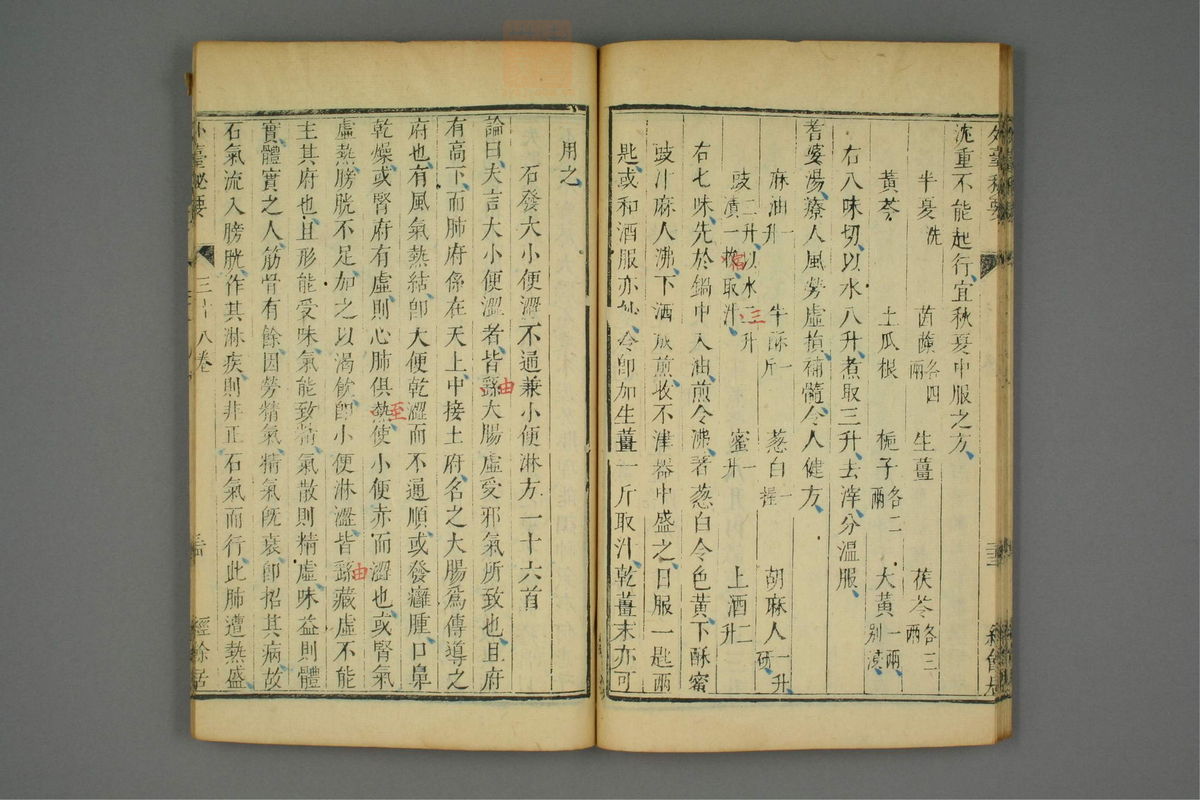 沈重不能起行宜秋夏中服之方
半夏洗 茵蔯各四兩 生薑 茯苓各三兩
黃芩 土瓜根 梔子各二兩 大黃一兩別漬
右八味切以水八升煮取三升去滓分溫服
耆婆湯療人風勞虛損補髓令人健方
麻油一升 牛酥一斤 葱白一握 胡麻人一升研
豉二升以水二升漬一 取汁 蜜一升 上酒二升
三
右七味先於鍋中入油煎令沸著葱白令色黃下酥蜜
豉汁麻人沸下酒成煎收不津器中盛之日服一匙兩
匙或和酒服亦妙冷卽加生薑一斤取汁乾薑末亦可
用之
石發大小便澀不通兼小便淋方一十六首
論曰夫言大小便澀者皆繇大腸虛受邪氣所致也且府
由
有高下而肺府係在天上中接土府名之大腸爲傳導之
府也有風氣熱結卽大便乾澀而不通順或發癰腫口鼻
乾燥或腎府有虛則心肺俱熱使小便赤而澀也或腎氣
至
虛熱膀胱不足加之以渴飲卽小便淋澀皆繇藏虛不能
由
主其府也且形能受味氣能致精氣散則精虛味益則體
實體實之人筋骨有餘因勞精氣精氣旣衰卽招其病故
石氣流入膀胱作其淋疾則非正石氣而行此肺遭熱盛
外臺祕要 三十八卷 經餘居